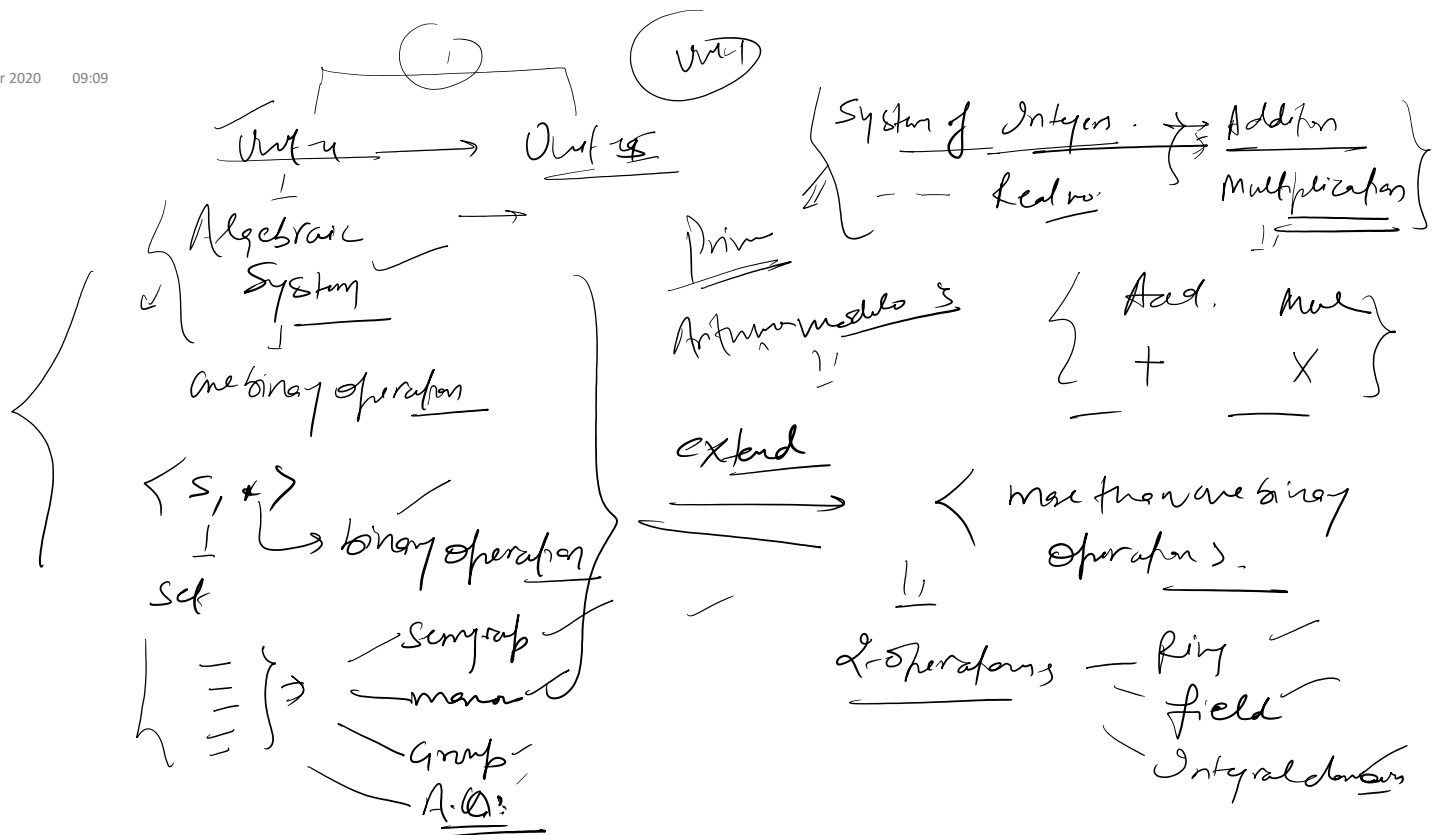 r 2020 09:09
1
Unit-1
Unit-4 → Unit-5
Algebraic →
System
one binary operation
< S, * >
→ binary operation
Set
Semgroup
Group
System of Integers. → Addition
- - Real no. Multiplication
Prim
modulo 5
Add. Mul
+ X
extend
< more than one binary
operations.
2-operations — Ring
field
Integral domain